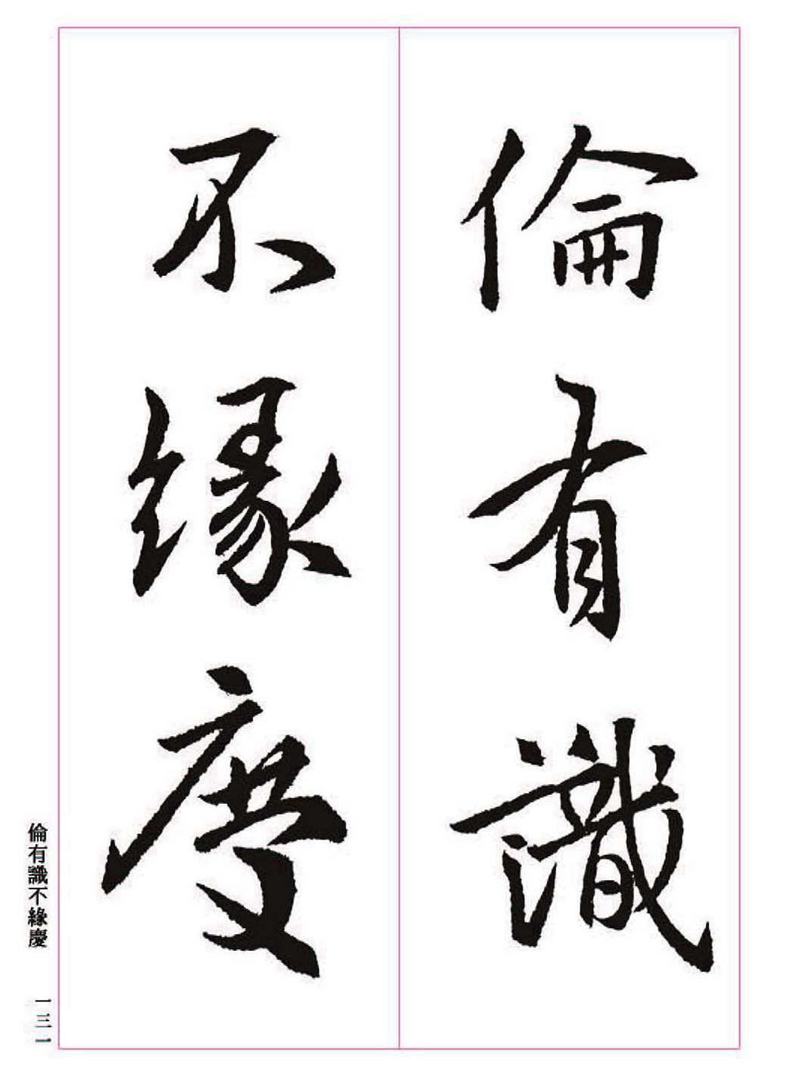 倫有識
不緣慶
倫有識不緣慶
一三一